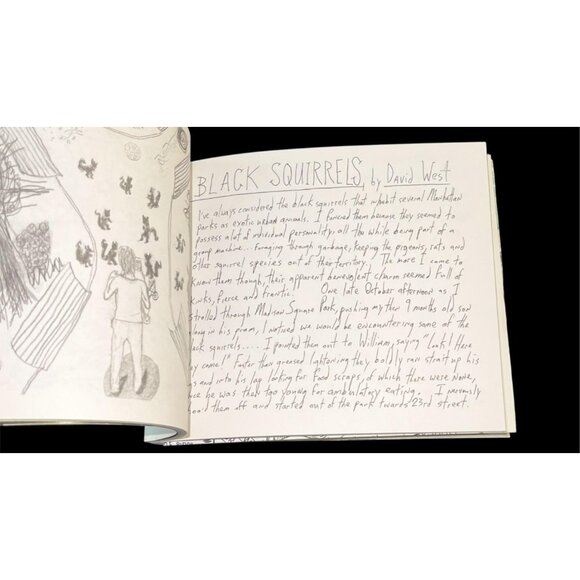 BLACK SQUIRRELS, by David West
I've always considered the black squirrels that inhabit several Manhattan
parks as exotic urban animals. I fancied them because they seemed to
possess a lot of individual personality; all the while being part of a
group machine... foraging through garbage, keeping the pigeons, rats and
other squirrel species out of their territory. The more I came to
know them though, their apparent benevolent charm seemed full of
kinks, fierce and frantic. One late October afternoon as I
strolled through Madison Square Park, pushing my then 9 months old son
along in his pram, I noticed we would be encountering some of the
black squirrels.... I pointed them out to William, saying "Look! Here
ey come!" Faster than greased lightening they boldly ran strait up his
s and into his lap looking for food scraps, of which there were none,
ce he was then too young for ambulatory eating. I nervously
oo'd them off and started out of the park towards 23rd street.